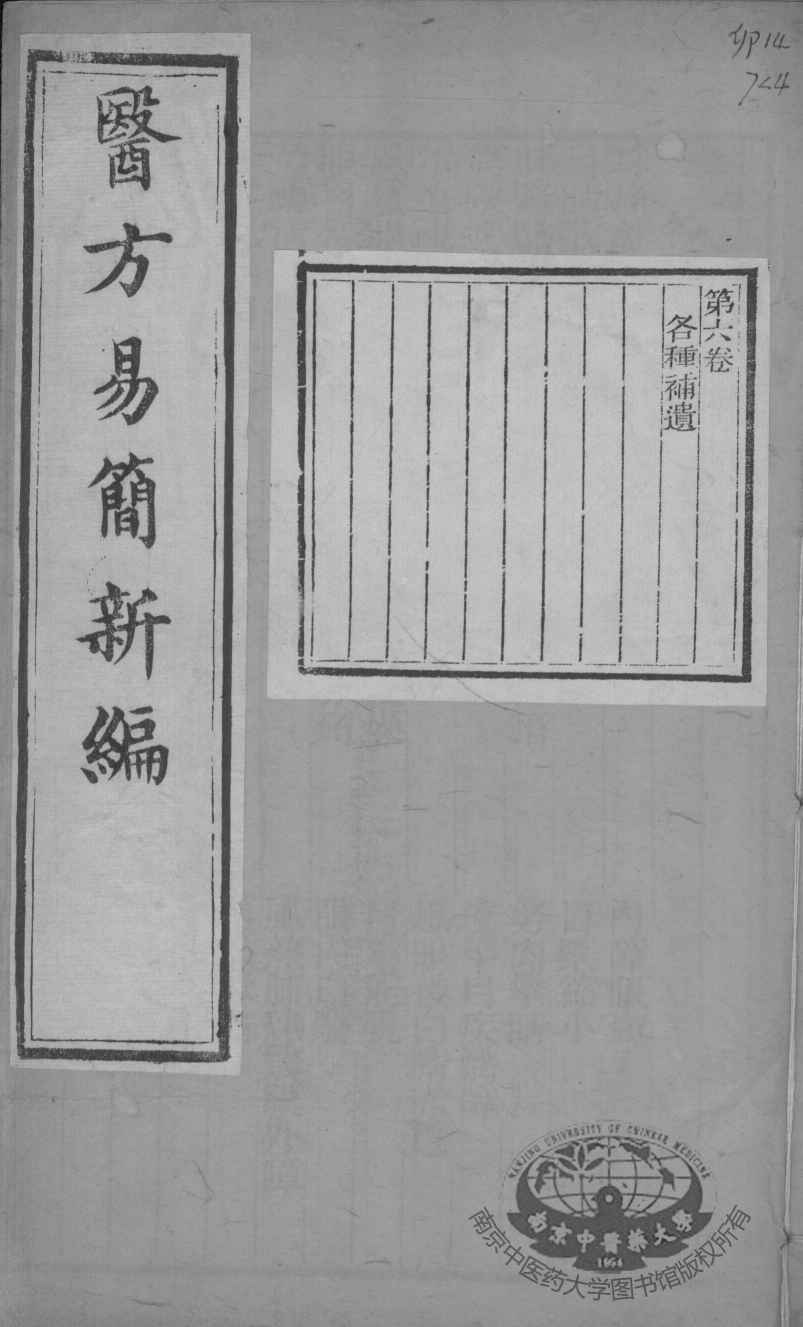 醫方易簡新編
第六卷
各種補遺
NANJING UNIVERSITY OF CHINESE MEDICINE
南京中醫藥大學
1954
南京中医药大学图书馆版权所有